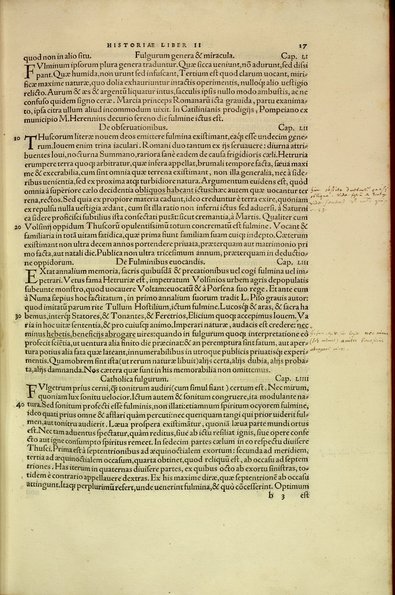 HISTORIAE LIBER II 17
quod non in alio situ. Fulgurum genera & miracula. Cap. LI
FVlminum ipsorum plura genera traduntur. Quæ sicca ueniunt, nõ adurunt, sed dissi
pant. Quæ humida, non urunt sed infuscant. Tertium est quod clarum uocant, miri-
ficæ maxime naturæ, quo dolia exhauriuntur intactis operimentis, nulloq; alio uestigio
relicto. Aurum & æs & argentũ liquatur intus, sacculis ipsis nullo modo ambustis, ac ne
confuso quidem signo ceræ. Marcia princeps Romanarũ icta grauida, partu exanima-
to, ipsa citra ullum aliud incommodum uixit. In Catilinanis prodigijs, Pompeiano ex
municipio M. Herennius decurio sereno die fulmine ictus est.
De obseruationibus. Cap. LII
10 THuscorum literæ nouem deos emittere fulmina existimant, eaq; esse undecim gene-
rum. Iouem enim trina iaculari. Romani duo tantum ex ijs seruauere: diurna attri
buentes Ioui, nocturna Summano, rariora sanè eadem de causa frigidioris cæli. Hetruria
erumpere terra quoq; arbitratur, quæ infera appellat, brumali tempore facta, sæua maxi
mè & execrabilia, cum sint omnia quæ terrena existimant, non illa generalia, nec à side-
ribus uenientia, sed ex proxima atq; turbidiore natura. Argumentum euidens est, quòd
omnia à superiore cælo decidentia obliquos habeant ictus: hæc autem quæ uocant ter
rena, rectos. Sed quia ex propiore materia cadunt, ideo creduntur è terra exire, quoniam
ex repulsu nulla uestigia ædant, cum sit illa ratio non inferni ictus, sed aduersi. A Saturni
ea sidere proficisci subtilius ista consectati putãt: sicut cremantia, à Martis. Qualiter cum
20 Volsinij oppidum Thuscorũ opulentissimũ totum concrematũ est fulmine. Vocant &
familiaria in totã uitam fatidica, quæ prima fiunt familiam suam cuiq; indepto. Cæterum
existimant non ultra decem annos portendere priuata, præterquam aut matrimonio pri
mo facta, aut natali die. Publica non ultra tricesimum annum, præterquam in deductio-
ne oppidorum. De Fulminibus euocandis. Cap. LIII
EXtat annalium memoria, sacris quibusdã & precationibus uel cogi fulmina uel im
petrari. Vetus fama Hetruriæ est, impetratum Volsinios urbem agris depopulatis
subeunte monstro, quod uocauere Voltam: euocatũ & à Porsena suo rege. Et ante eum
à Numa sæpius hoc factitatum, in primo annalium suorum tradit L. Piso grauis autor:
quod imitatũ parum rite Tullum Hostilium, ictum fulmine. Lucosq; & aras, & sacra ha
30 bemus, interq; Statores, & Tonantes, & Feretrios, Elicium quoq; accepimus Iouem. Va
ria in hoc uitæ sententia, & pro cuiusq; animo. Imperari naturæ, audacis est credere: nec
minus hebetis, beneficijs abrogare uires: quando in fulgurum quoq; interpretatione eò
profecit scientia, ut uentura alia finito die præcinat: & an peremptura sint fatum, aut aper-
tura potius alia fata quæ lateant, innumerabilibus in utroque publicis priuatisq; experi-
mentis. Quamobrem sint ista (ut rerum naturæ libuit) alijs certa, alijs dubia, alijs proba-
ta, alijs damnanda. Nos cætera quæ sunt in his memorabilia non omittemus.
Catholica fulgurum. Cap. LIIII
FVlgetrum prius cerni, q̃ tonitruum audiri (cum simul fiant) certum est. Nec mirum,
quoniam lux sonitu uelocior. Ictum autem & sonitum congruere, ita modulante na-
40 tura. Sed sonitum profecti esse fulminis, non illati: etiamnum spiritum ocyorem fulmine,
ideo quati prius omne & afflari quàm percuti: nec quenquam tangi qui prior uiderit ful-
men, aut tonitru audierit. Læua prospera existimãtur, quoniã læua parte mundi ortus
est. Nec tam aduentus spectatur, quàm reditus, siue ab ictu resilit ignis, siue opere confe
cto aut igne consumpto spiritus remeet. In sedecim partes cælum in eo respectu diuisere
Thusci. Prima est à septentrionibus ad æquinoctialem exortum: secunda ad meridiem,
tertia ad æquinoctialem occasum, quarta obtinet, quod reliquũ est, ab occasu ad septem
triones. Has iterum in quaternas diuisere partes, ex quibus octo ab exortu sinistras, to-
tidem è contrario appellauere dextras. Ex his maximè diræ, quæ septentrionem ab occasu
attingunt. Itaq; perplurimũ refert, unde uenerint fulmina, & quò cõcesserint. Optimum
b 3 est